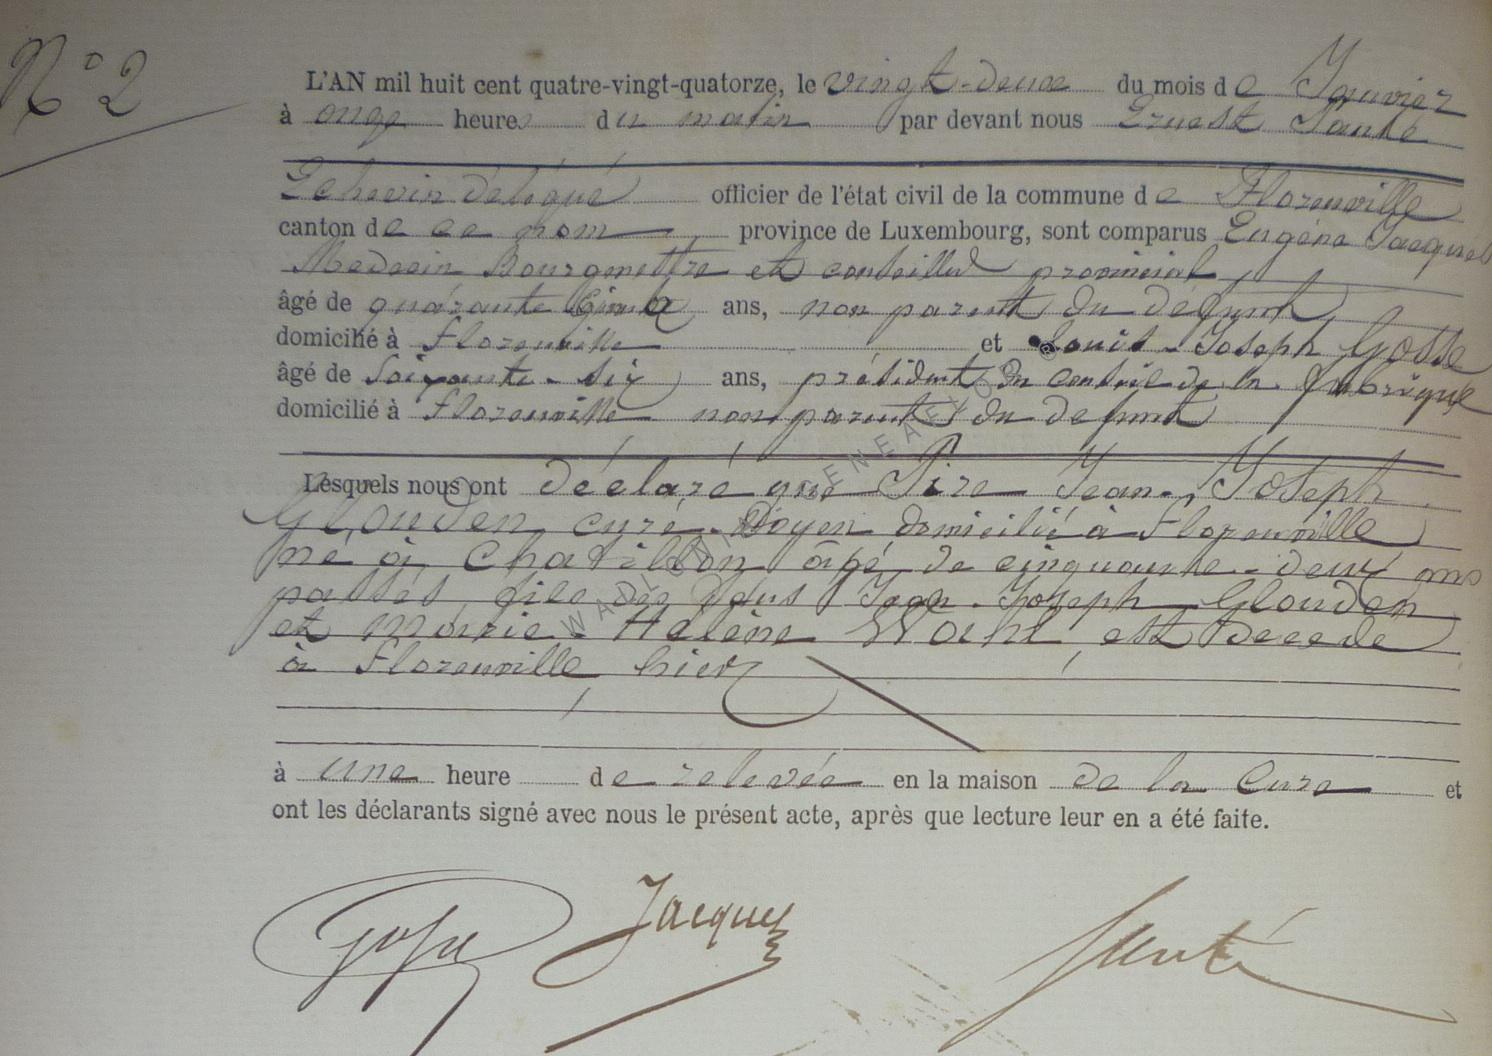 N° 2
L'AN mil huit cent quatre-vingt-quatorze, le vingt-deux du mois de Janvier
à onze heures du matin par devant nous Ernest Santé
Echevin délégué officier de l'état civil de la commune de Florenville
canton de ce nom province de Luxembourg, sont comparus Eugène Jacques
Medecin Bourgmettre et conseiller provincial
âgé de quarante cinq ans, non parent du défunt
domicilié à Florenville et Louis - Joseph Gosse
âgé de Soixante - six ans, président du conseil de la fabrique
domicilié à Florenville non parent du defunt
Lesquels nous ont déclaré que Pire Jean - Joseph
Glouden curé - Doyen domicilié à Florenville
né à Chatillon âgé de cinquante - deux ans
passés, fils des Jean - Joseph Glouden
et Marie - Hélène Wahl, est décédé
à Florenville hier
à une heure de relevée en la maison de la Cure et
ont les déclarants signé avec nous le présent acte, après que lecture leur en a été faite.
Gosse Jacques Santé